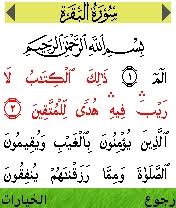 سُورَةُ البَقَرَة
بِسْمِ ٱللَّهِ ٱلرَّحْمَٰنِ ٱلرَّحِيمِ
الٓمٓ ﴿١﴾ ذَٰلِكَ ٱلْكِتَٰبُ لَا
رَيْبَ ۛ فِيهِ ۛ هُدًى لِّلْمُتَّقِينَ ﴿٢﴾
ٱلَّذِينَ يُؤْمِنُونَ بِٱلْغَيْبِ وَيُقِيمُونَ
ٱلصَّلَوٰةَ وَمِمَّا رَزَقْنَٰهُمْ يُنفِقُونَ
رجوع
الخيارات